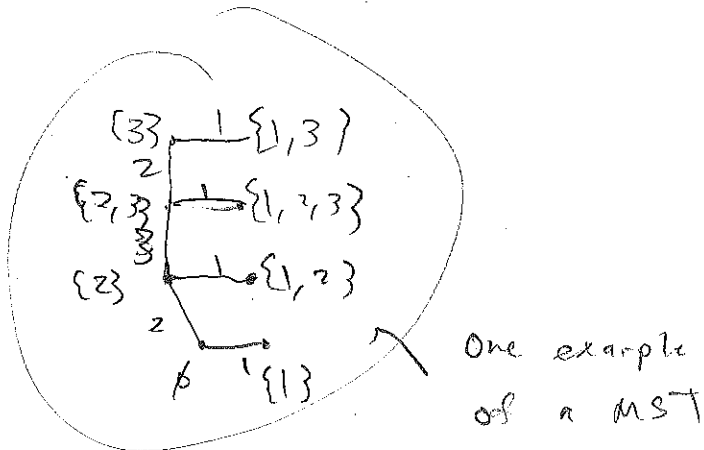 {3} 1 {1,3}
2
{2,3} 1 {1,2,3}
3
{2} 1 {1,2}
2
∅ 1 {1}
One example
of a MST